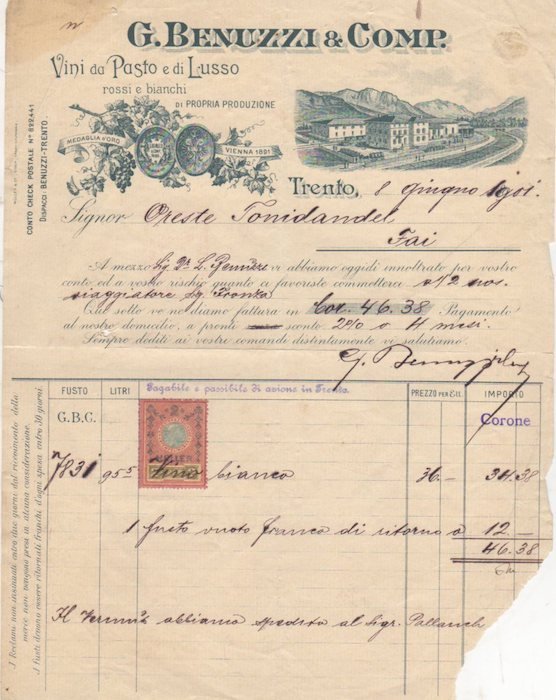 G. BENUZZI & COMP.
Vini da Pasto e di Lusso
rossi e bianchi
DI PROPRIA PRODUZIONE
MEDAGLIA d'ORO
VIENNA 1891
CONTO CHECK POSTALE Nº 822441
DISPACCI: BENUZZI-TRENTO.
Trento, 8 giugno 1901.
Signor Oreste Tonidandel
Fai
A mezzo Sig. Dr. L. vi abbiamo oggidì innoltrato per vostro
conto ed a vostro rischio quanto ci favoriste commetterci a/z nos.
viaggiatore Sg. Tronka
Qui sotto ve ne diamo fattura in Cor. 46.38 Pagamento
al nostro domicilio, a pronti sconto 2% o 4 mesi.
Sempre dediti ai vostri comandi distintamente vi salutiamo.
G. Benuzzi
FUSTO LITRI Pagabile e passibile di azione in Trento. PREZZO PER Ett. IMPORTO
G.B.C. Corone
7831 95 5 Vino bianco 36.– 34.38
1 fusto vuoto franco di ritorno a 12 –
46.38
Il Vermut abbiamo spedito al Sigr. Pallanch
I Reclami non insinuati entro due giorni dal ricevimento della
merce non vengono presi in alcuna considerazione.
I fusti devono essere ritornati franchi d'ogni spesa entro 30 giorni.